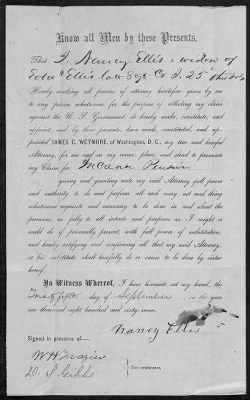 Know all Men by these Presents,
That I Nancy Ellis widow of
Ellis late Co I. 25
Hereby revoking all powers of attorney heretofore given by me
to any person whomsoever for the purpose of collecting my claim
against the U. S. Government, do hereby make, constitute, and
appoint, and by these presents, have made, constituted, and ap-
pointed JAMES C. WETMORE, of Washington, D. C., my true and lawful
Attorney, for me and in my name, place, and stead to prosecute
my Claim for Increase Pension
giving and granting unto my said Attorney full power
and authority to do and perform all and every act and thing
whatsoever requisite and necessary to be done in and about the
premises, as fully to all intents and purposes as I might or
could do if personally present, with full power of substitution,
and hereby ratifying and confirming all that my said Attorney,
or his substitute shall lawfully do or cause to be done by virtue
hereof.
In Witness Whereof, I have hereunto set my hand, the
twenty fifth day of September in the year
one thousand eight hundred and sixty-seven
Nancy Ellis
Signed in presence of—
W H Brazier
D. S. Gibbs
Two witnesses.